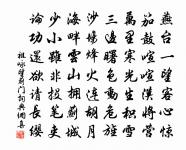 燕台一望客心驚
笳鼓喧喧漢將營
萬里寒光生積雪
三邊曙色動危旌
沙場烽火連胡月
海畔雲山擁薊城
少小雖非投筆吏
論功還欲請長纓
祖咏望薊门詞典網